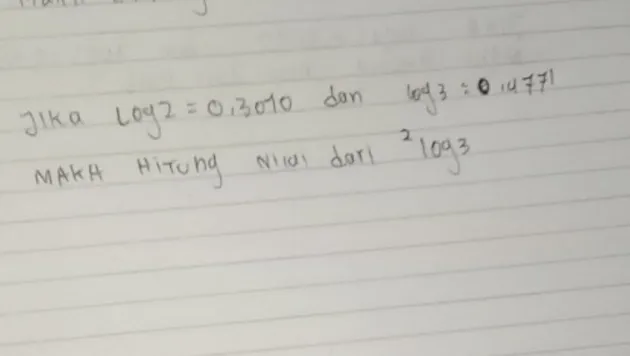 JIKA Log2 = 0,3010 dan log3 = 0,4771
MAKA HiTung Nilai dari ²log3